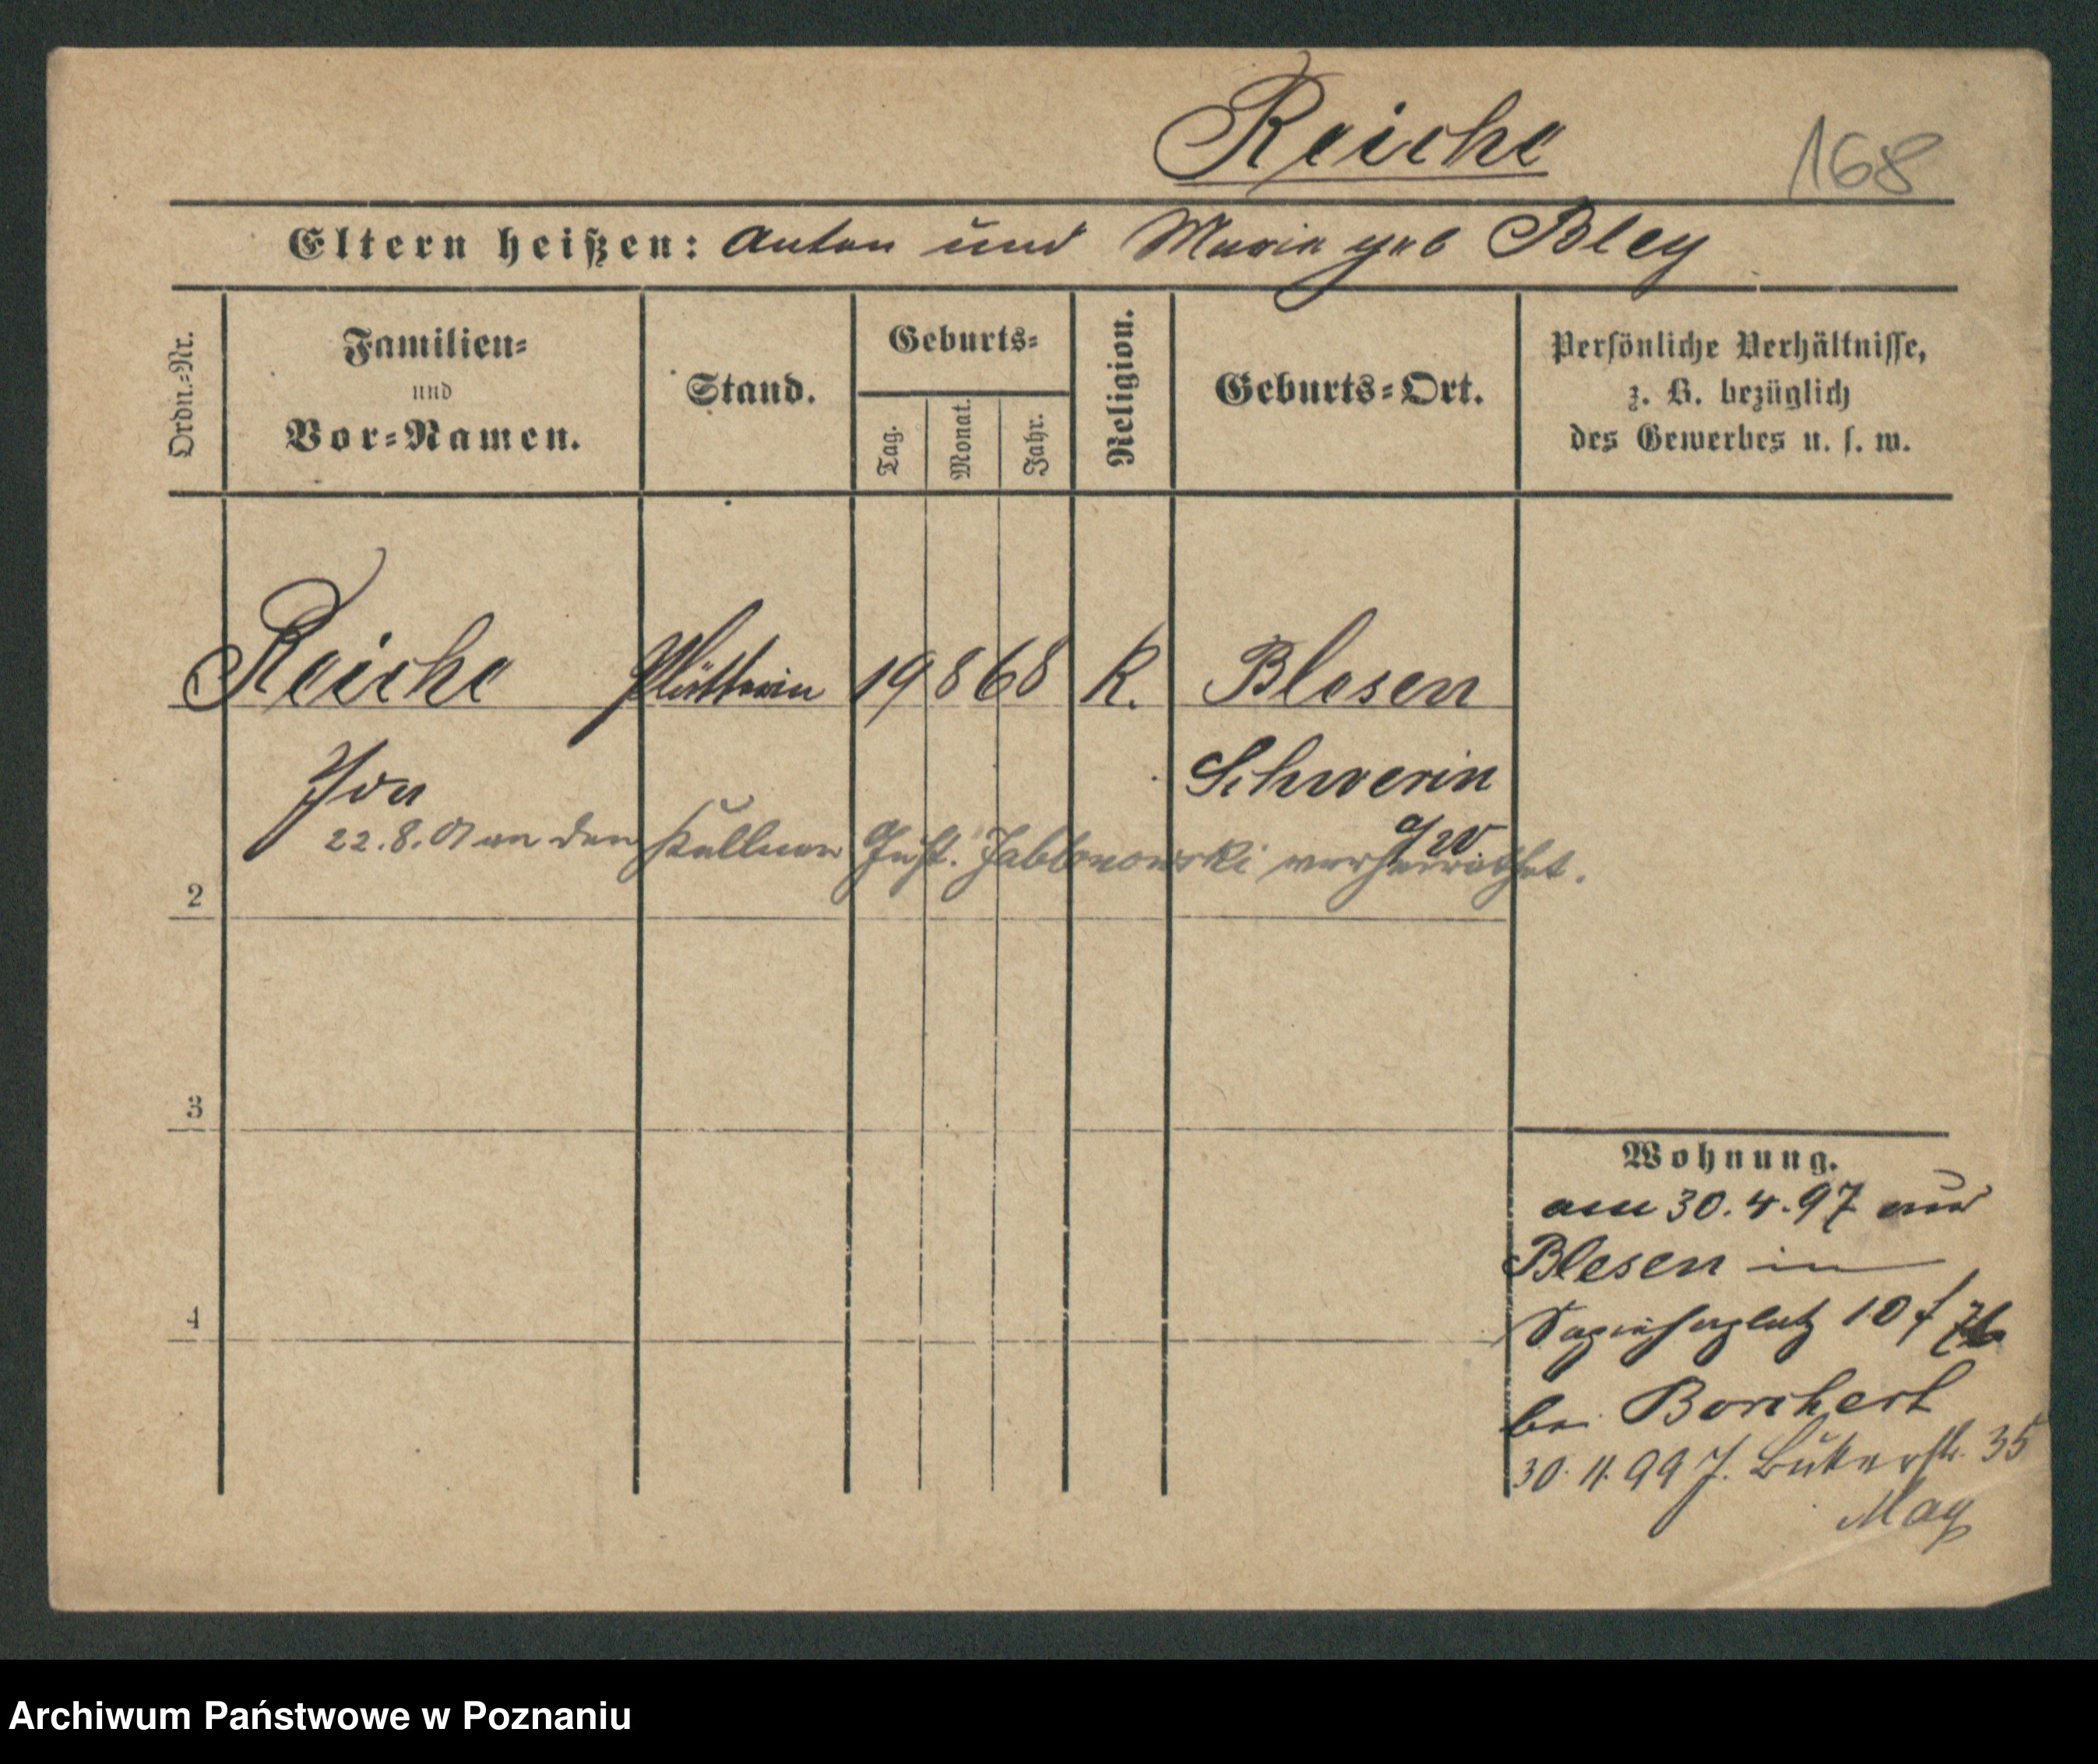 Reiche
168
Eltern heißen: Anton und Maria geb Bley
Ordn.=Nr.
Familien=
und
Vor=Namen.
Stand.
Geburts=
Tag.
Monat.
Jahr.
Religion.
Geburts=Ort.
Persönliche Verhältnisse,
z. B. bezüglich
des Gewerbes u. s. w.
Reiche Plätterin 19 8 68 K. Blesen
Ida Schwerin
a/W
22.8.01 an den Kellner Gust. Jablonowski verheirathet.
2
3
4
Wohnung.
am 30.4.97 aus
Blesen in
Sapiehaplatz 10
bei Borchert
30.11.99 J. Buker str. 35
May